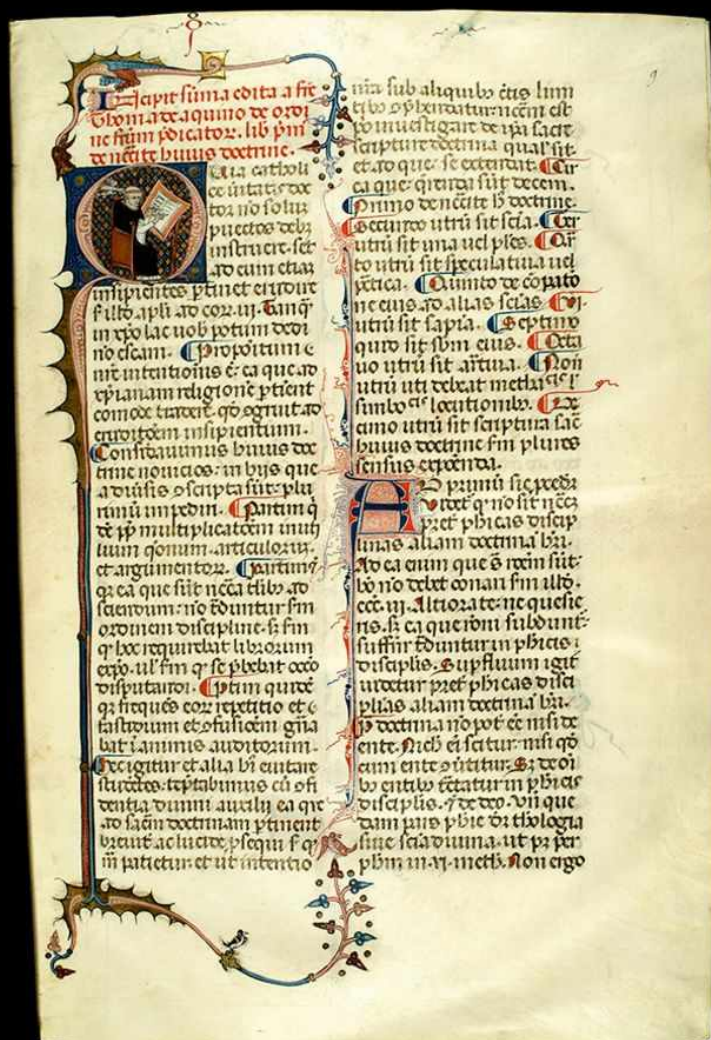 Incipit sum̄a edita a fr̄e
Thoma de aquino de ordi
ne frm̄ p̄dicator. lib p̄m
de nec̄ite huius doctrine.
Quia catholi
ce ueritatis doc
tor nō soluꝫ
puectos debꝫ
instruere. set
ad eum etiaꝫ
insipientes ptinet erudire
ſ illd apl̄i ad cor. iii. Tanq̄
in xp̄o lac uob potum dedi
nō escam. Propositum
nr̄e intentionis ē: ea que ad
xp̄ianam religionē ptient
eo modo tradere. qd ogruit ad
erudit̄oem insipientium.
Considauimus huius doc
trine nouicios: in hijs que
a diūsis scripta sūt: pli
rimū impediri. Partim q̄
dē pp̄ multiplicat̄oem inuti
lium q̄onum. articulorum.
et argumentorꝫ. Partim ꝫ
qr ea que sūt nec̄ca tlibꝫ ad
sciendum: nō t̄duntur sm̄
ordinem discipline. sꝫ sm̄
q hoc requirebat librorum
expo. ul sm̄ q se p̄bebat occo
disputandi. Ptim quidē
q freques eorꝫ repetitio et
fastidium et ofusioēm gn̄a
bat ī animis auditorum.
Hec igitur et alia hī euitare
studētes: tēptabimus cū ofi
dentia diuini auxilij ea que
ad sacm̄ doctrinam ptinent
breuit ac lucide psequi ſ q
m̄ patietur. et ut intentio
nr̄a sub aliquibꝫ c̄tis limi
tibꝫ ophendatur: nec̄m est
p̄o inuestigare de ip̄a sacre
scripture doctrina qual sit.
et ad que se extendat. Cir
ca que q̄renda sūt decem.
Primo de nec̄ite hꝰ doctrine.
Secundo utrū sit scīa. Ter
utrū sit una uel pl̄es. Qar
to utrū sit speculatiua uel
p̄ctica. Quinto de cōpato
ne eius ad alias scīas. Vi.
utrū sit sapīa. Septimo
quid sit sbm̄ eius. Octa
uo utrū sit artīua. Non
utrū uti debeat methacis
simbocis locutionibꝫ. De
cimo utrū sit scriptura sac̄
huius doctrine sm̄ plures
sensus exponenda.
Ad primū sic p̄cedr̄
Videt q nō sit nec̄
pret phicas discip
linas aliam doctrinā h̄ri.
Ad ea enim que s̄ roēm sūt:
hō nō debet conari sm̄ illd.
ecc̄. iii. Altiora te: ne quesie
ris. sꝫ ea que rōni subdunt:
suffitr t̄duntur in phicis
disciplis. Supfluum igit
uidetur pret phicas disci
plīas aliam doctrinā h̄ri.
P̄ doctrina nō pot ee nisi de
ente. Nich eī scitur. nisi qd
cum ente outitur. Sꝫ de oī
bꝫ entibꝫ tc̄tatur in phicis
disciplis. ꝫ de deo. vn̄ que
dam pars phie dr̄ theologia
siue scīa diuina. ut pꝫ per
phm̄ in. vi. meth. Non ergo